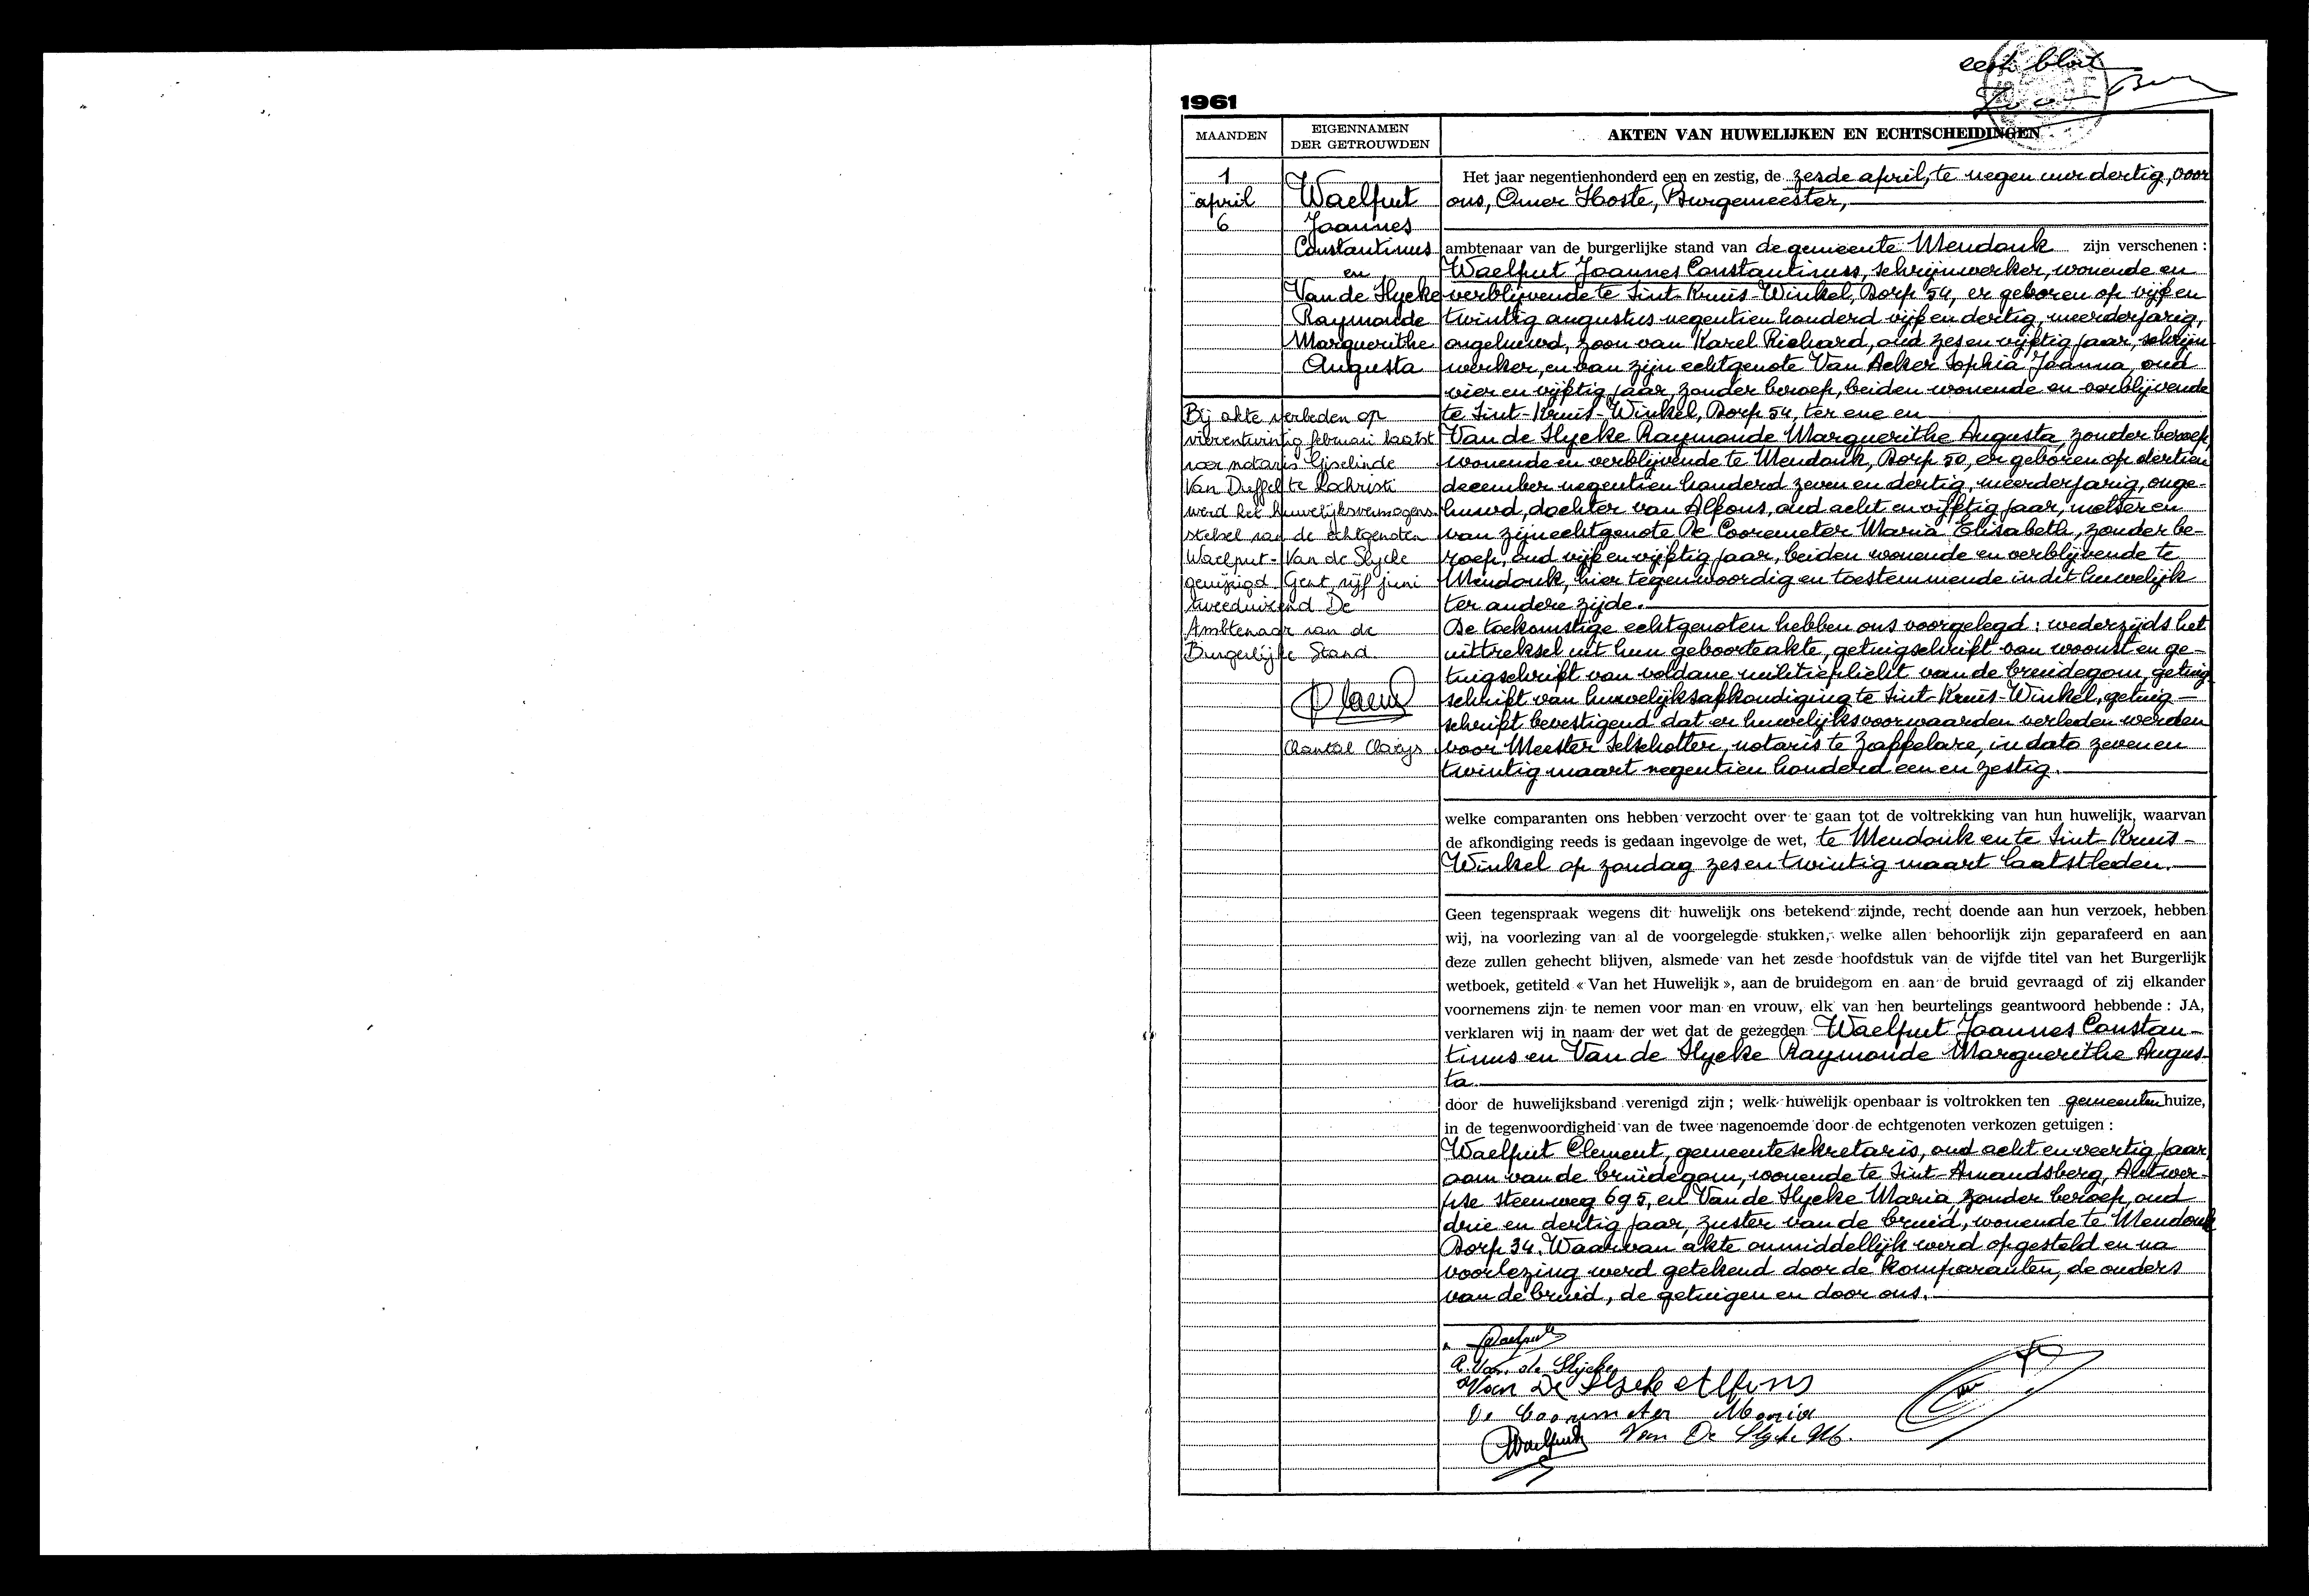 eerste blad
1961
MAANDEN
EIGENNAMEN
DER GETROUWDEN
AKTEN VAN HUWELIJKEN EN ECHTSCHEIDINGEN
1
april
6
Waelput
Joannes
Constantinus
en
Van de Slycke
Raymonde
Marguerithe
Augusta
Bij akte verleden op
vierentwintig februari laatst
voor notaris Giselinde
Van Duffel te Lochristi
werd het huwelijksvermogens-
stelsel van de echtgenoten
Waelput - Van de Slycke
gewijzigd. Gent, vijf juni
tweeduizend De
Ambtenaar van de
Burgerlijke Stand.
Chantal Claeys
Het jaar negentienhonderd een en zestig, de zesde april, te negen uur dertig, voor
ons, Omer Hoste, Burgemeester,
ambtenaar van de burgerlijke stand van de gemeente Mendonk zijn verschenen :
Waelput Joannes Constantinus, schrijnwerker, wonende en
verblijvende te Sint-Kruis-Winkel, Dorp 54, er geboren op vijf en
twintig augustus negentien honderd vijf en dertig, meerderjarig,
ongehuwd, zoon van Karel Richard, oud zes en vijftig jaar, schrijn
werker, en van zijn echtgenote Van Acker Sophia Joanna, oud
vier en vijftig jaar, zonder beroep, beiden wonende en verblijvende
te Sint-Kruis-Winkel, Dorp 54, ter ene en
Van de Slycke Raymonde Marguerithe Augusta, zonder beroep,
wonende en verblijvende te Mendonk, Dorp 50, er geboren op dertien
december negentien honderd zeven en dertig, meerderjarig, onge-
huwd, dochter van Alfons, oud acht en vijftig jaar, metser en
van zijn echtgenote De Cooremeter Maria Elisabeth, zonder be-
roep, oud vijf en vijftig jaar, beiden wonende en verblijvende te
Mendonk, hier tegenwoordig en toestemmende in dit huwelijk
ter andere zijde.
De toekomstige echtgenoten hebben ons voorgelegd : wederzijds het
uittreksel uit hun geboorteakte, getuigschrift van woonst en ge-
tuigschrift van voldane militieplicht van de bruidegom, getuig
schrift van huwelijksafkondiging te Sint-Kruis-Winkel, getuig -
schrift bevestigend dat er huwelijksvoorwaarden verleden werden
voor Meester Selschotter, notaris te Zaffelare, in dato zeven en
twintig maart negentien honderd een en zestig.
welke comparanten ons hebben verzocht over te gaan tot de voltrekking van hun huwelijk, waarvan
de afkondiging reeds is gedaan ingevolge de wet, te Mendonk en te Sint-Kruis-
Winkel op zondag zes en twintig maart laatstleden.
Geen tegenspraak wegens dit huwelijk ons betekend zijnde, recht doende aan hun verzoek, hebben
wij, na voorlezing van al de voorgelegde stukken, welke allen behoorlijk zijn geparafeerd en aan
deze zullen gehecht blijven, alsmede van het zesde hoofdstuk van de vijfde titel van het Burgerlijk
wetboek, getiteld « Van het Huwelijk », aan de bruidegom en aan de bruid gevraagd of zij elkander
voornemens zijn te nemen voor man en vrouw, elk van hen beurtelings geantwoord hebbende : JA,
verklaren wij in naam der wet dat de gezegden Waelput Joannes Constan-
tinus en Van de Slycke Raymonde Marguerithe Augus-
ta.
door de huwelijksband verenigd zijn ; welk huwelijk openbaar is voltrokken ten gemeentenhuize,
in de tegenwoordigheid van de twee nagenoemde door de echtgenoten verkozen getuigen :
Waelput Clement, gemeentesekretaris, oud acht en veertig jaar
oom van de bruidegom, wonende te Sint-Amandsberg, Antwer-
pse steenweg 695, en Van de Slycke Maria, zonder beroep, oud
drie en dertig jaar, zuster van de bruid, wonende te Mendonk
Dorp 34. Waarvan akte onmiddellijk werd opgesteld en na
voorlezing werd getekend door de komparanten, de ouders
van de bruid, de getuigen en door ons.
Waelput
R. Van de Slycke
Van De Slycke Alfons
De Cooremeter Maria
Waelput Van De Slycke M.